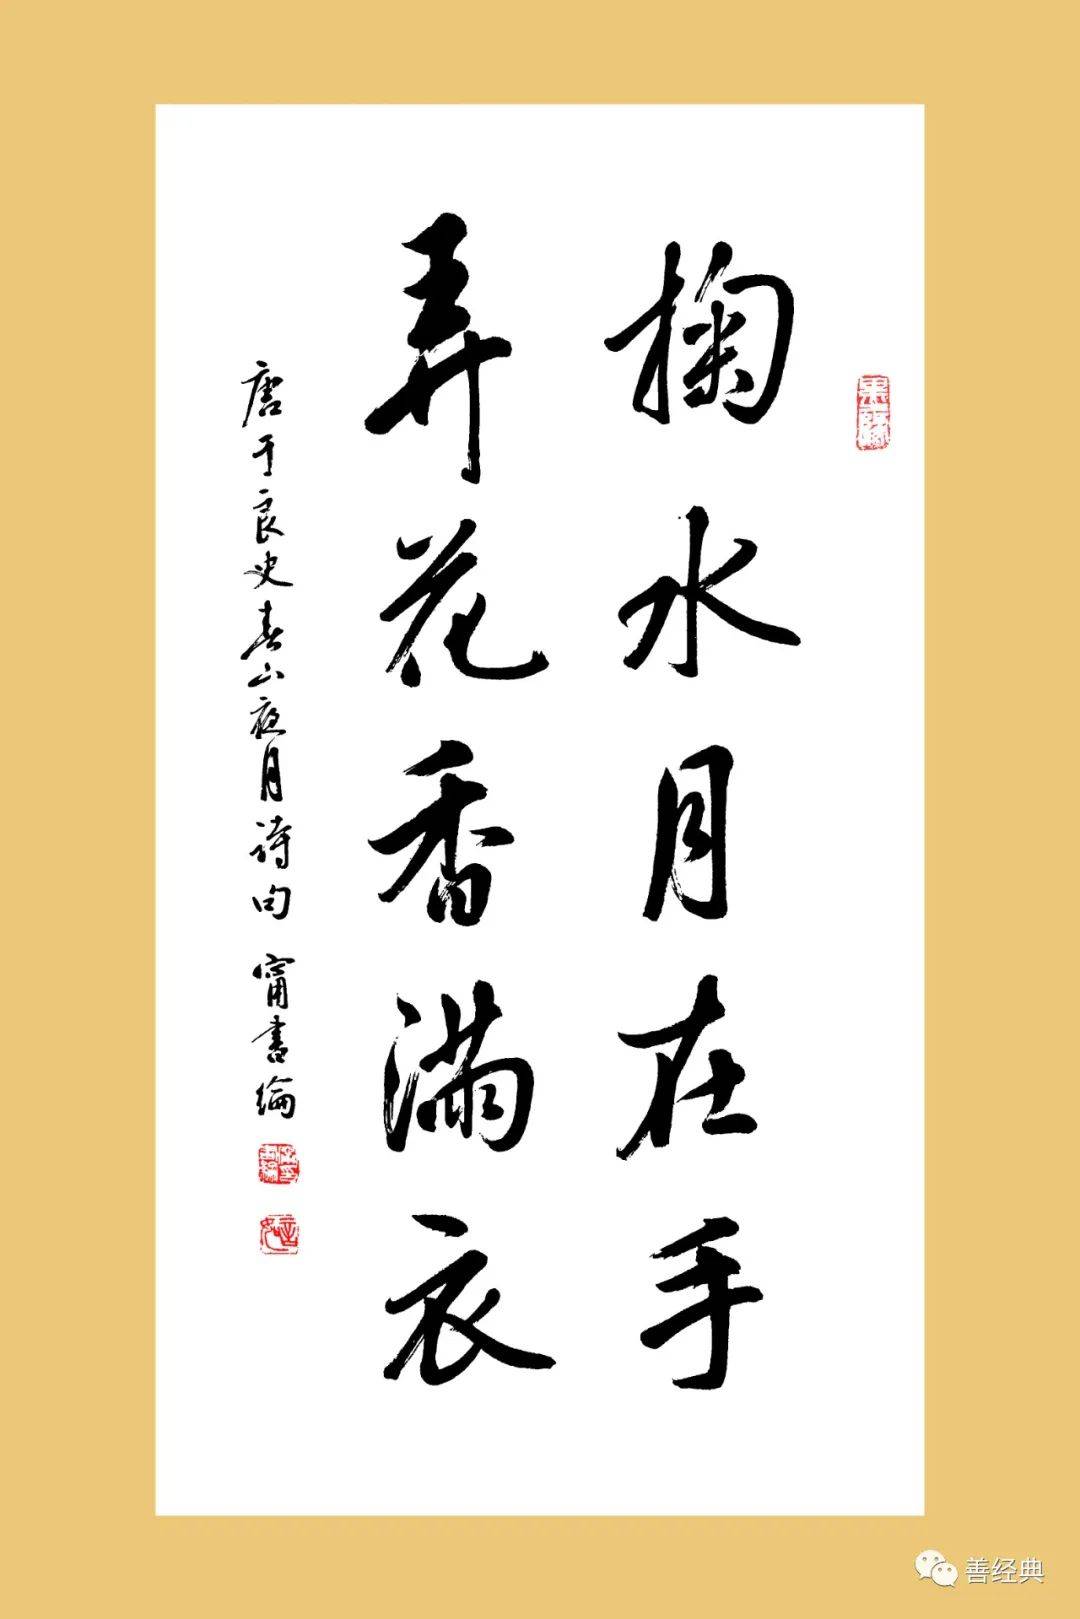 掬水月在手
弄花香满衣
唐于良史春山夜月詩句 甯書綸
善经典